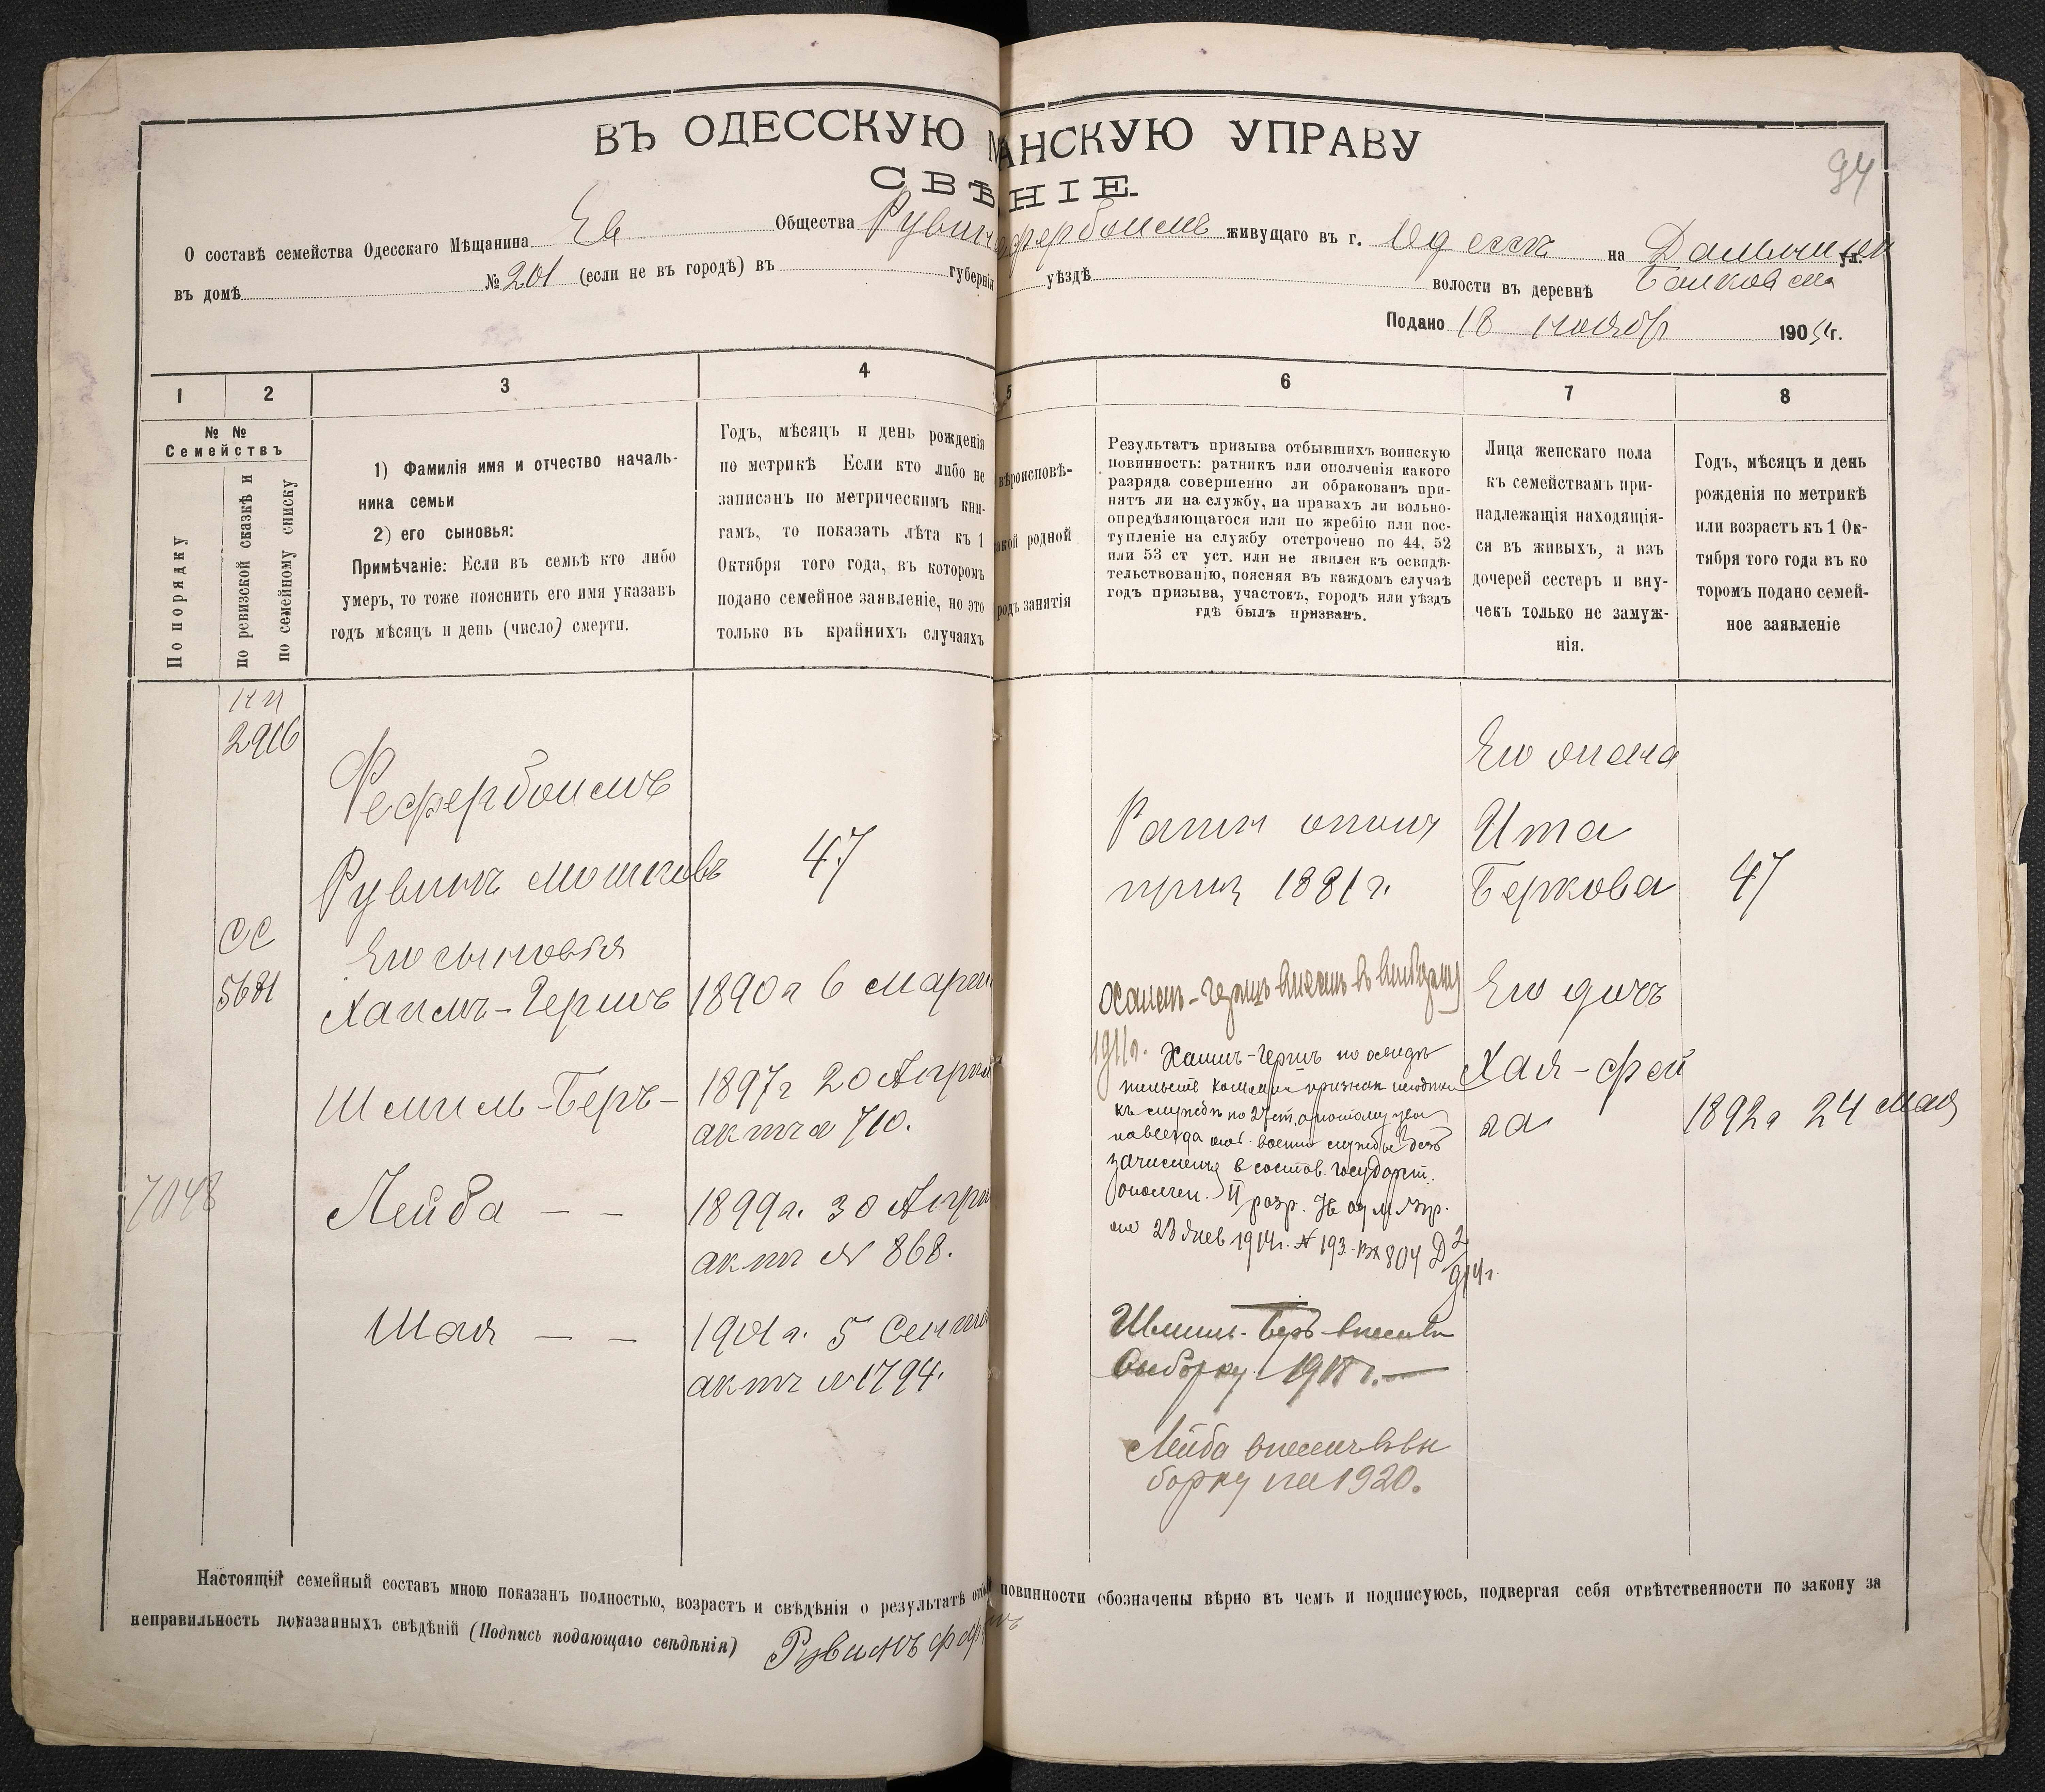 94
ВЪ ОДЕССКУЮ М АНСКУЮ УПРАВУ
СВѢ НІЕ.
О составѣ семейства Одесскаго Мѣщанина Ев Общества Рувин Фефербоимъ живущаго въ г. Одессѣ на ул.
въ домѣ № 201 (если не въ городѣ) въ губерніи уѣздѣ волости въ деревнѣ
Подано 18 ноябр 190 г.
1 2 3 4 5 6 7 8
№ №
Семействъ
По порядку
по ревизской сказкѣ и
по семейному списку
1) Фамилія имя и отчество началь-
ника семьи
2) его сыновья:
Примѣчаніе: Если въ семьѣ кто либо
умеръ, то тоже пояснить его имя указавъ
годъ мѣсяцъ и день (число) смерти.
Годъ, мѣсяцъ и день рожденія
по метрикѣ Если кто либо не
записанъ по метрическимъ кни-
гамъ, то показать лѣта къ 1
Октября того года, въ которомъ
подано семейное заявленіе, но это
только въ крайнихъ случаяхъ
вѣроисповѣ-
акой родной
родъ занятія
Результатъ призыва отбывшихъ воинскую
повинность: ратникъ или ополченія какого
разряда совершенно ли обракованъ при-
нятъ ли на службу, на правахъ ли вольно-
опредѣляющагося или по жребію или пос-
тупленіе на службу отстрочено по 44, 52
или 53 ст уст. или не явился къ освидѣ-
тельствованію, поясняя въ каждомъ случаѣ
годъ призыва, участокъ, городъ или уѣздъ
гдѣ былъ призванъ.
Лица женскаго пола
къ семействамъ при-
надлежащія находящія-
ся въ живыхъ, а изъ
дочерей сестеръ и вну-
чекъ только не замуж-
нія.
Годъ, мѣсяцъ и день
рожденія по метрикѣ
или возрастъ къ 1 Ок-
тября того года въ ко
торомъ подано семей-
ное заявленіе
2916
Фефербоимъ
Рувинъ Мошковъ 47
Ратн ополч
приз 1881 г.
Его жена
Ита
Беркова 47
СС
5681
Его сыновья
Хаимъ-Гершъ 1890 г 6 Марта
Шмиль-Беръ- 1897 г 20 Апрѣл
актъ № 710.
7048
Лейба — — 1899 г. 30 Апрѣ
актъ № 868.
Шая — — 1901 г. 5 Сентяб
актъ № 1794.
Хаимъ-Гершъ внесенъ в выборку
1911 г.
Хаимъ-Гершъ по освидѣ
къ службѣ по 27 ст. а потому
навсегда службы безъ
зачисления в состав. Государст.
ополчен. II разр.
23 Янв 1914 г. № 193 804 2
914 г.
Шмиль-Беръ внесенъ
выборку 1918 г.—
Лейба внесенъ в вы
борку на 1920.
Его дочь
Хая-Фей
га 1892 г 24 Мая
Настоящій семейный составъ мною показанъ полностью, возрастъ и свѣдѣнія о результатѣ отб повинности обозначены вѣрно въ чемъ и подписуюсь, подвергая себя отвѣтственности по закону за
неправильность показанныхъ свѣдѣній (Подпись подающаго свѣдѣнія) Рувинъ